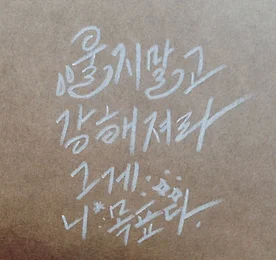 울지말고
강해져라
그게...
니 목표다.